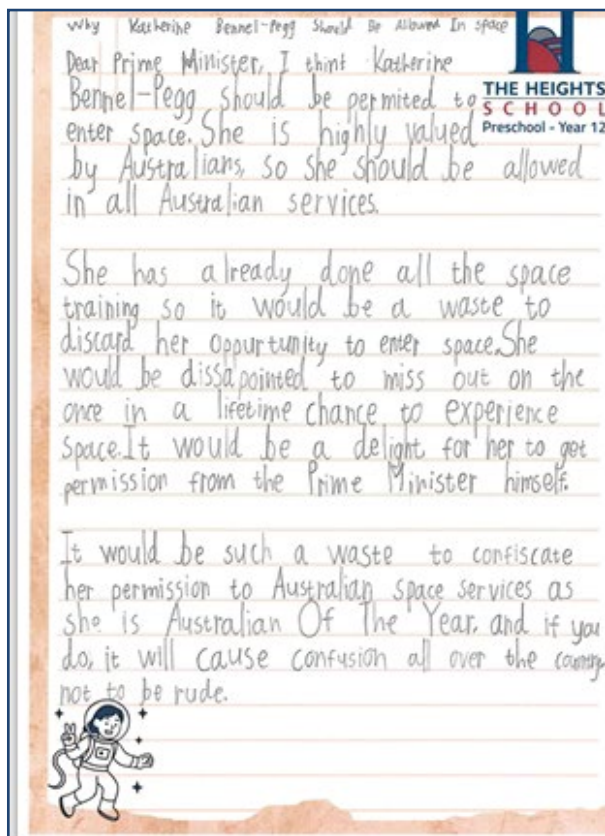 Why Katherine Bennel-Pegg Should Be Allowed In space
Dear Prime Minister, I think Katherine
Bennel-Pegg should be permited to
enter space. She is highly valued
by Australians, so she should be allowed
in all Australian services.
THE HEIGHTS
SCHOOL
Preschool - Year 12
She has already done all the space
training so it would be a waste to
discard her oppurtunity to enter space. She
would be dissapointed to miss out on the
once in a lifetime chance to experience
space. It would be a delight for her to get
permission from the Prime Minister himself.
It would be such a waste to confiscate
her permission to Australian space services as
she is Australian Of The Year, and if you
do, it will cause confusion all over the country
not to be rude.